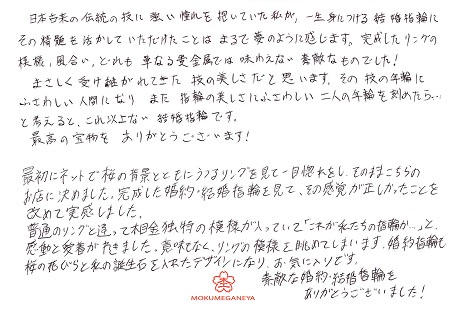 日本古来の伝統の技に強い憧れを抱いていた私が、一生身につける結婚指輪に
その精髄を活かしていただけたことは まるで夢のように感じます。完成したリングの
模様、風合い、どれも 単なる貴金属では味わえない素敵なものでした！
まさしく受け継がれてきた 技の美しさだと思います。その技の年輪に
ふさわしい人間になり また 指輪の美しさにふさわしい 二人の年輪を刻めたら…
と考えると、これ以上ない 結婚指輪です。
最高の宝物を ありがとうございます！
最初にネットで桜の背景とともにうつるリングを見て一目惚れをし、そのままこちらの
お店に決めました。完成した婚約・結婚指輪を見て、その感覚が正しかったことを
改めて実感しました。
普通のリングと違って木目金独特の模様が入っていて「これが私たちの指輪か…」と、
感動と愛着がわきました。意味もなく、リングの模様を眺めてしまいます。婚約指輪も
桜の花びらと私の誕生石を入れたデザインになり、お気に入りです。
素敵な婚約・結婚指輪を
ありがとうございました！
MOKUMEGANEYA